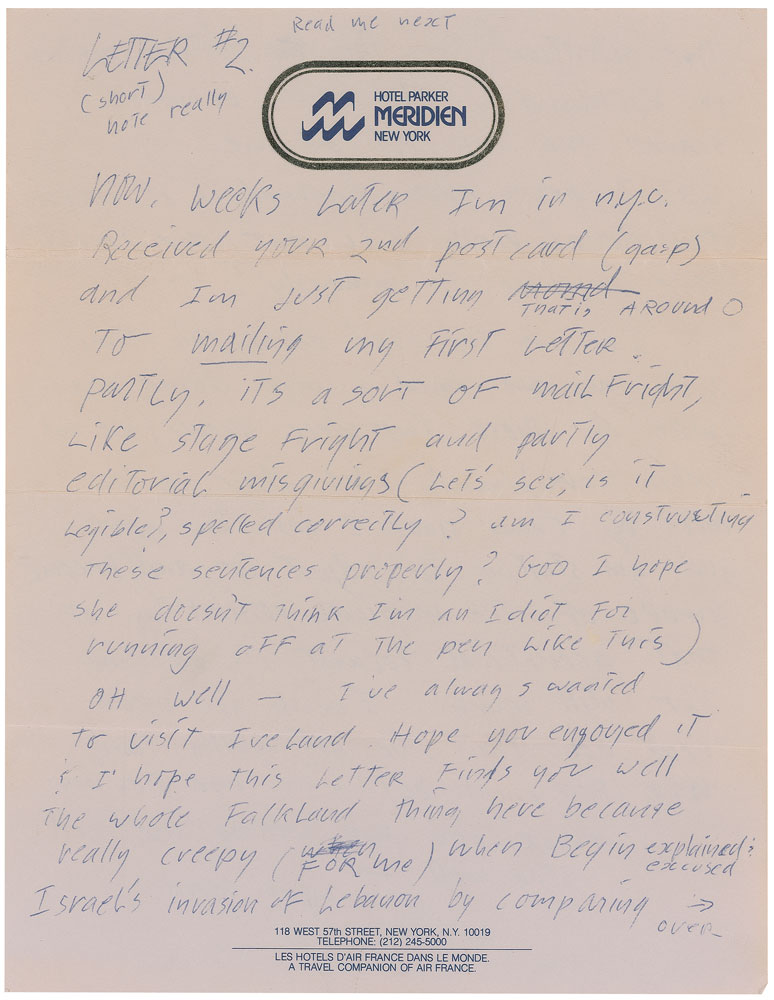 Read me next
LETTER #2.
(short)
note really
HOTEL PARKER
MERIDIEN
NEW YORK
NOW, weeks Later Im in n.y.c.
Received your 2nd post card (gasp)
and Im just getting
That is, AROUND
To mailing my First Letter.
partly, iTs a sort of mail Fright,
Like stage Fright and partly
editorial misgivings (Let's see, is iT
Legible?, spelled correctly? am I constructing
These sentences properly? GOD I hope
she doesn't Think I'm an Idiot For
running oFF aT The pen Like This)
OH well — I've always wanted
To visiT Ireland. Hope you engoyed iT
& I hope this Letter Finds you well
The whole FalkLand Thing here became
really creepy (FOR me) when Begin explained?
excused
Israel's invasion oF Lebanon by comparing →
over_
118 WEST 57th STREET, NEW YORK, N.Y. 10019
TELEPHONE: (212) 245-5000
LES HOTELS D'AIR FRANCE DANS LE MONDE.
A TRAVEL COMPANION OF AIR FRANCE.